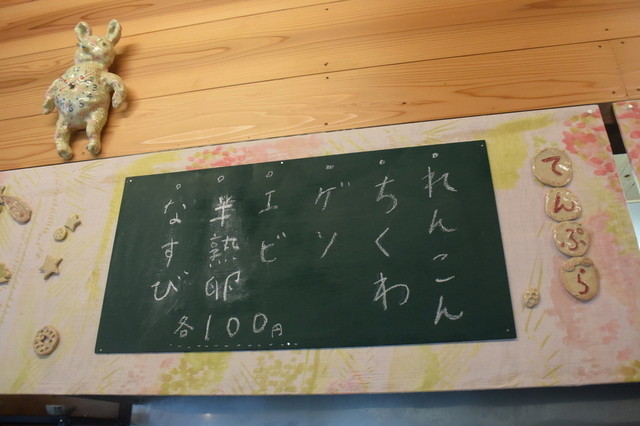 てんぷら
。れんこん
。ちくわ
。ゲソ
。エビ
。半熟卵
。なすび
各100円